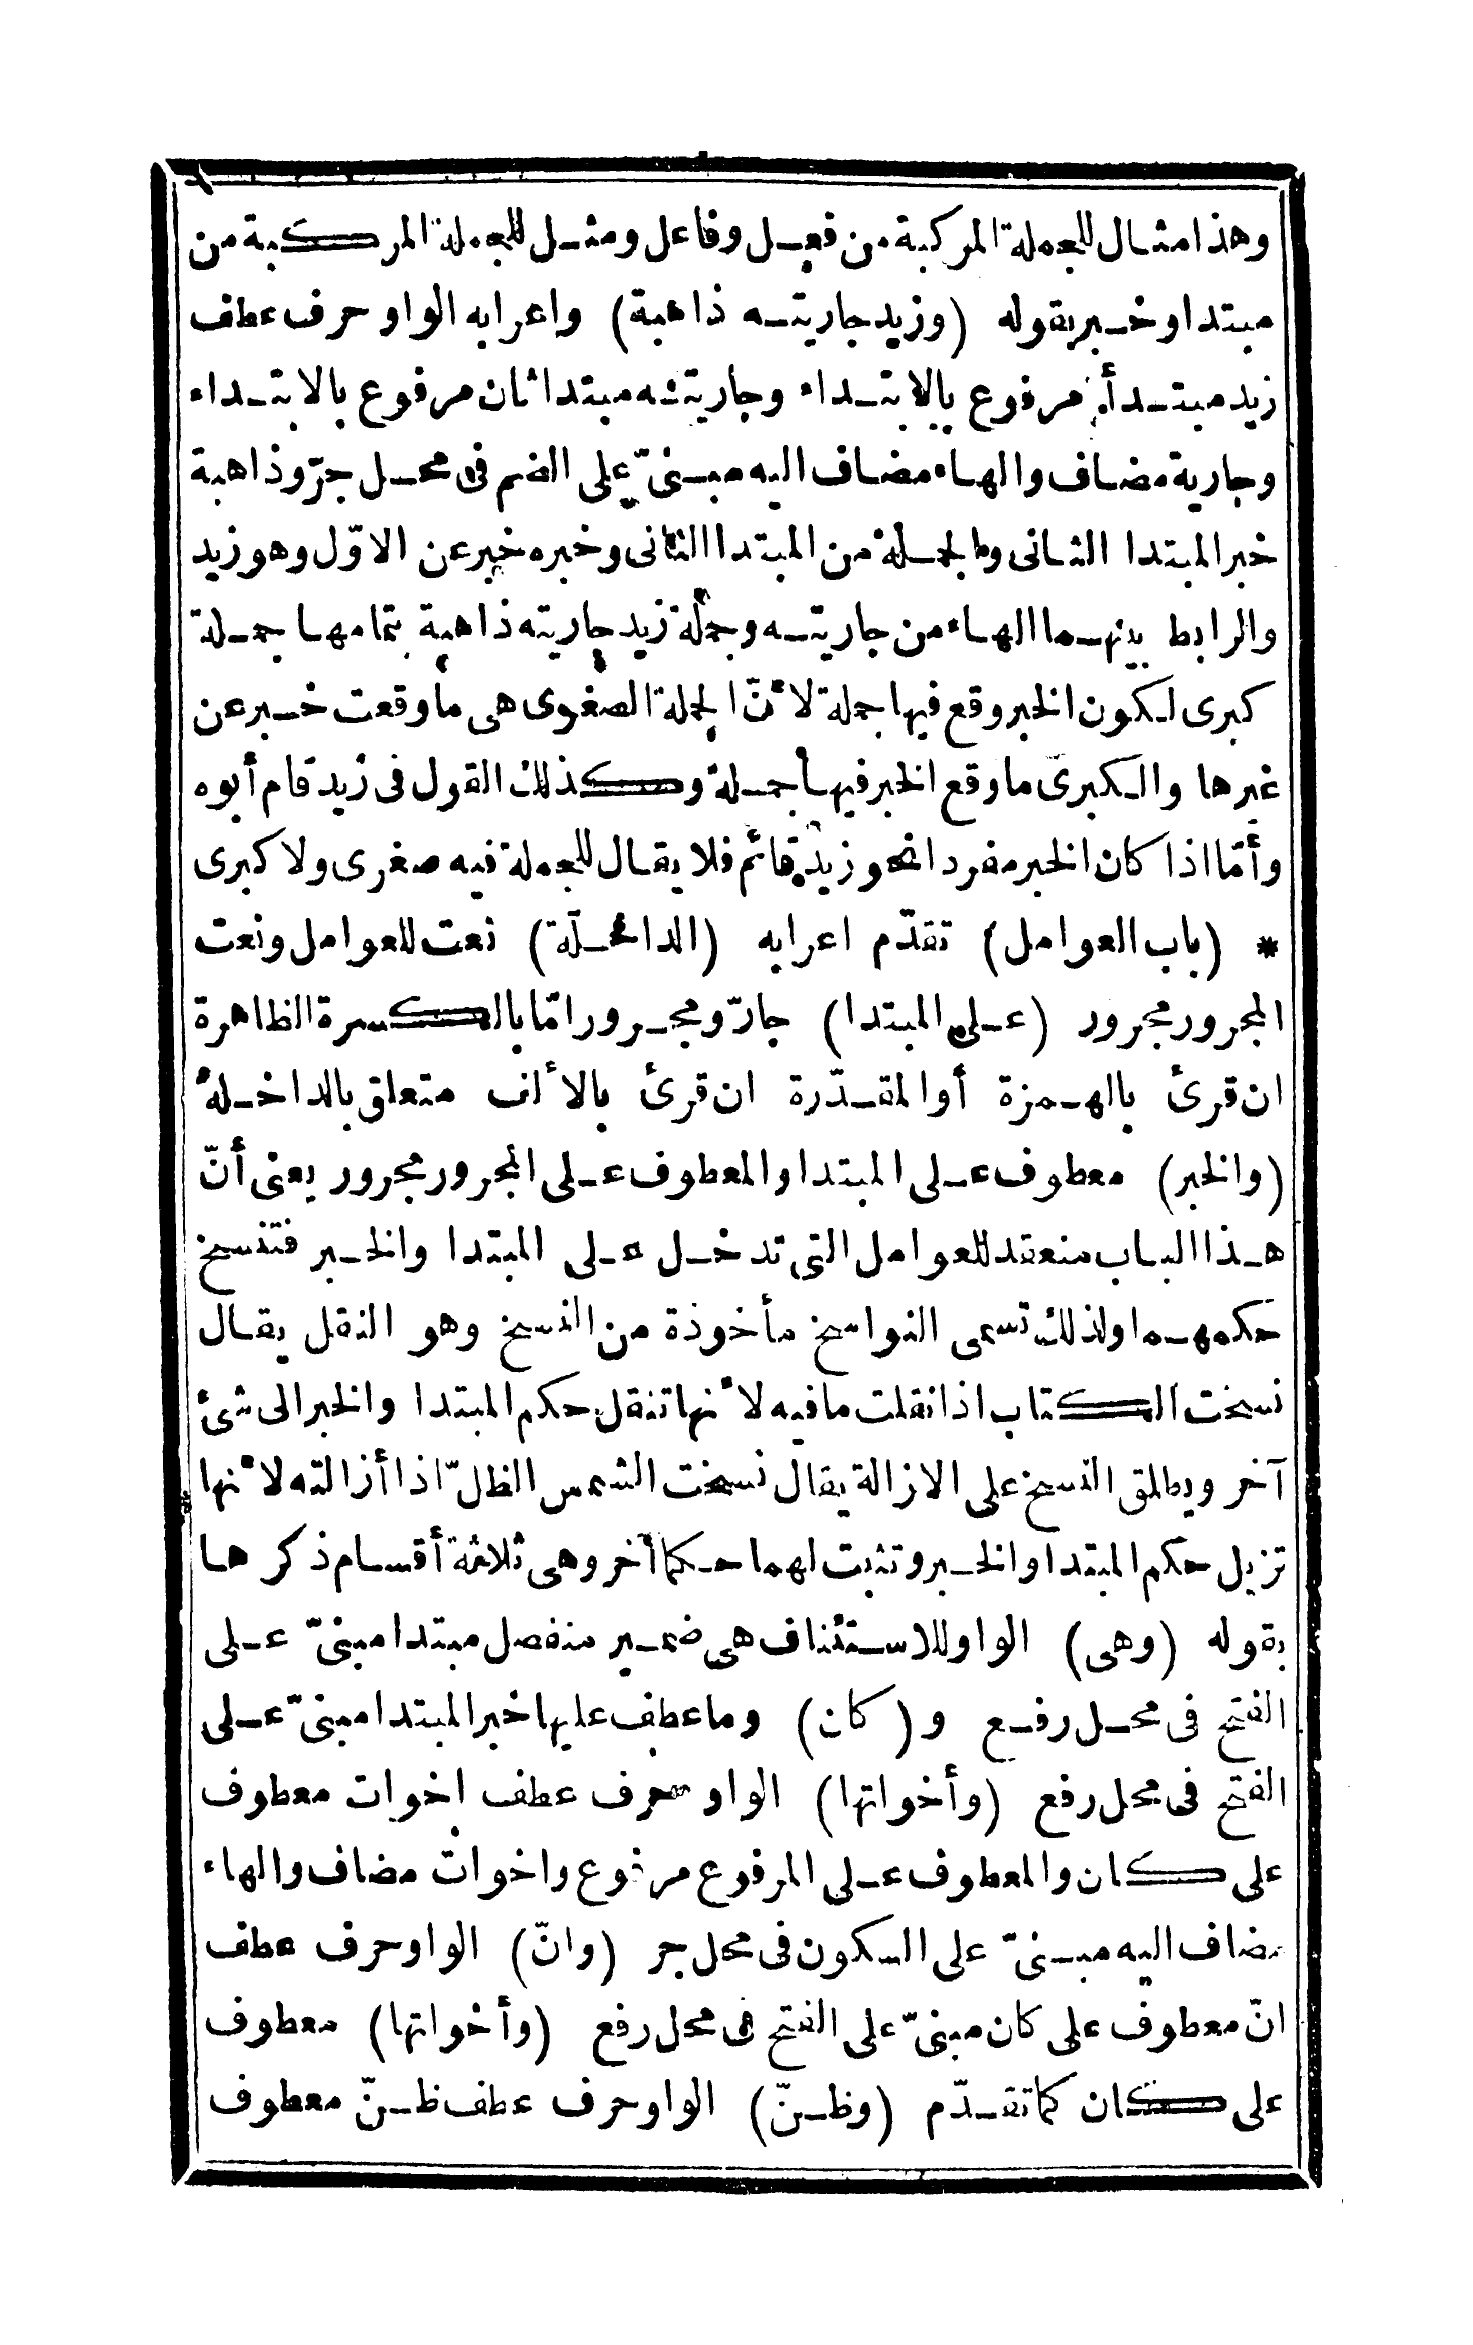 وهذا مثال للجملة المركبة من فعل وفاعل ومثل للجملة المركبة من
مبتدا وخبر بقوله (وزيد جاريته ذاهبة) واعرابه الواو حرف عطف
زيد مبتدأ مرفوع بالابتداء وجاريته مبتدا ثان مرفوع بالابتداء
وجارية مضاف والهاء مضاف اليه مبنىّ على الضم فى محل جرّ وذاهبة
خبر المبتدا الثانى والجملة من المبتدا الثانى وخبره خبر عن الاوّل وهو زيد
والرابط بينهما الهاء من جاريته وجملة زيد جاريته ذاهبة بتمامها جملة
كبرى لكون الخبر وقع فيها جملة لأنّ الجملة الصغرى هى ما وقعت خبر عن
غيرها والكبرى ما وقع الخبر فيها جملة وكذلك القول فى زيد قام أبوه
وأمّا اذا كان الخبر مفردا نحو زيد قائم فلا يقال للجملة فيه صغرى ولا كبرى
* (باب العوامل) تقدّم اعرابه (الداخلة) نعت للعوامل ونعت
المجرور مجرور (على المبتدا) جارّ ومجرور امّا بالكسرة الظاهرة
ان قرئ بالهمزة أو المقدّرة ان قرئ بالألف متعلق بالداخلة
(والخبر) معطوف على المبتدا والمعطوف على المجرور مجرور يعنى أنّ
هذا الباب منعقد للعوامل التى تدخل على المبتدا والخبر فتنسخ
حكمهما ولذلك تسمى النواسخ مأخوذة من النسخ وهو النقل يقال
نسخت الكتاب اذا نقلت ما فيه لأنها تنقل حكم المبتدا والخبر الى شئ
آخر ويطلق النسخ على الازالة يقال نسخت الشمس الظلّ اذا أزالته لأنها
تزيل حكم المبتدا والخبر وتثبت لهما حكما آخر وهى ثلاثة أقسام ذكرها
بقوله (وهى) الواو للاستئناف هى ضمير منفصل مبتدا مبنىّ على
الفتح فى محل رفع و(كان) وما عطف عليها خبر المبتدا مبنىّ على
الفتح فى محل رفع (وأخواتها) الواو حرف عطف اخوات معطوف
على كان والمعطوف على المرفوع مرفوع واخوات مضاف والهاء
مضاف اليه مبنىّ على السكون فى محل جر (وانّ) الواو حرف عطف
انّ معطوف على كان مبنىّ على الفتح فى محل رفع (وأخواتها) معطوف
على كان كما تقدّم (وظنّ) الواو حرف عطف ظنّ معطوف